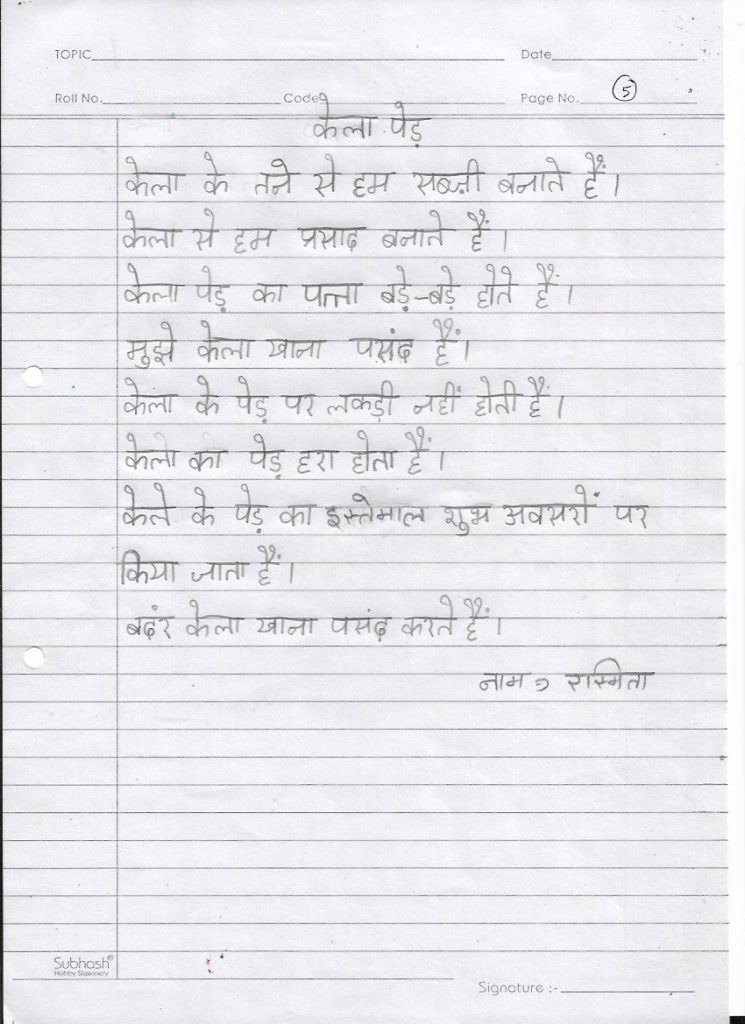 TOPIC Date
Roll No. Code Page No. 5
केला पेड़
केला के तने से हम सब्ज़ी बनाते हैं।
केला से हम प्रसाद बनाते हैं।
केला पेड़ का पत्ता बड़े-बड़े होते हैं।
मुझे केला खाना पसंद हैं।
केला के पेड़ पर लकड़ी नहीं होती हैं।
केला का पेड़ हरा होता हैं।
केले के पेड़ का इस्तेमाल शुभ अवसरों पर
किया जाता हैं।
बदंर केला खाना पसंद करते हैं।
नाम => रास्मिता
Subhash
Hobby Stationery
Signature :-